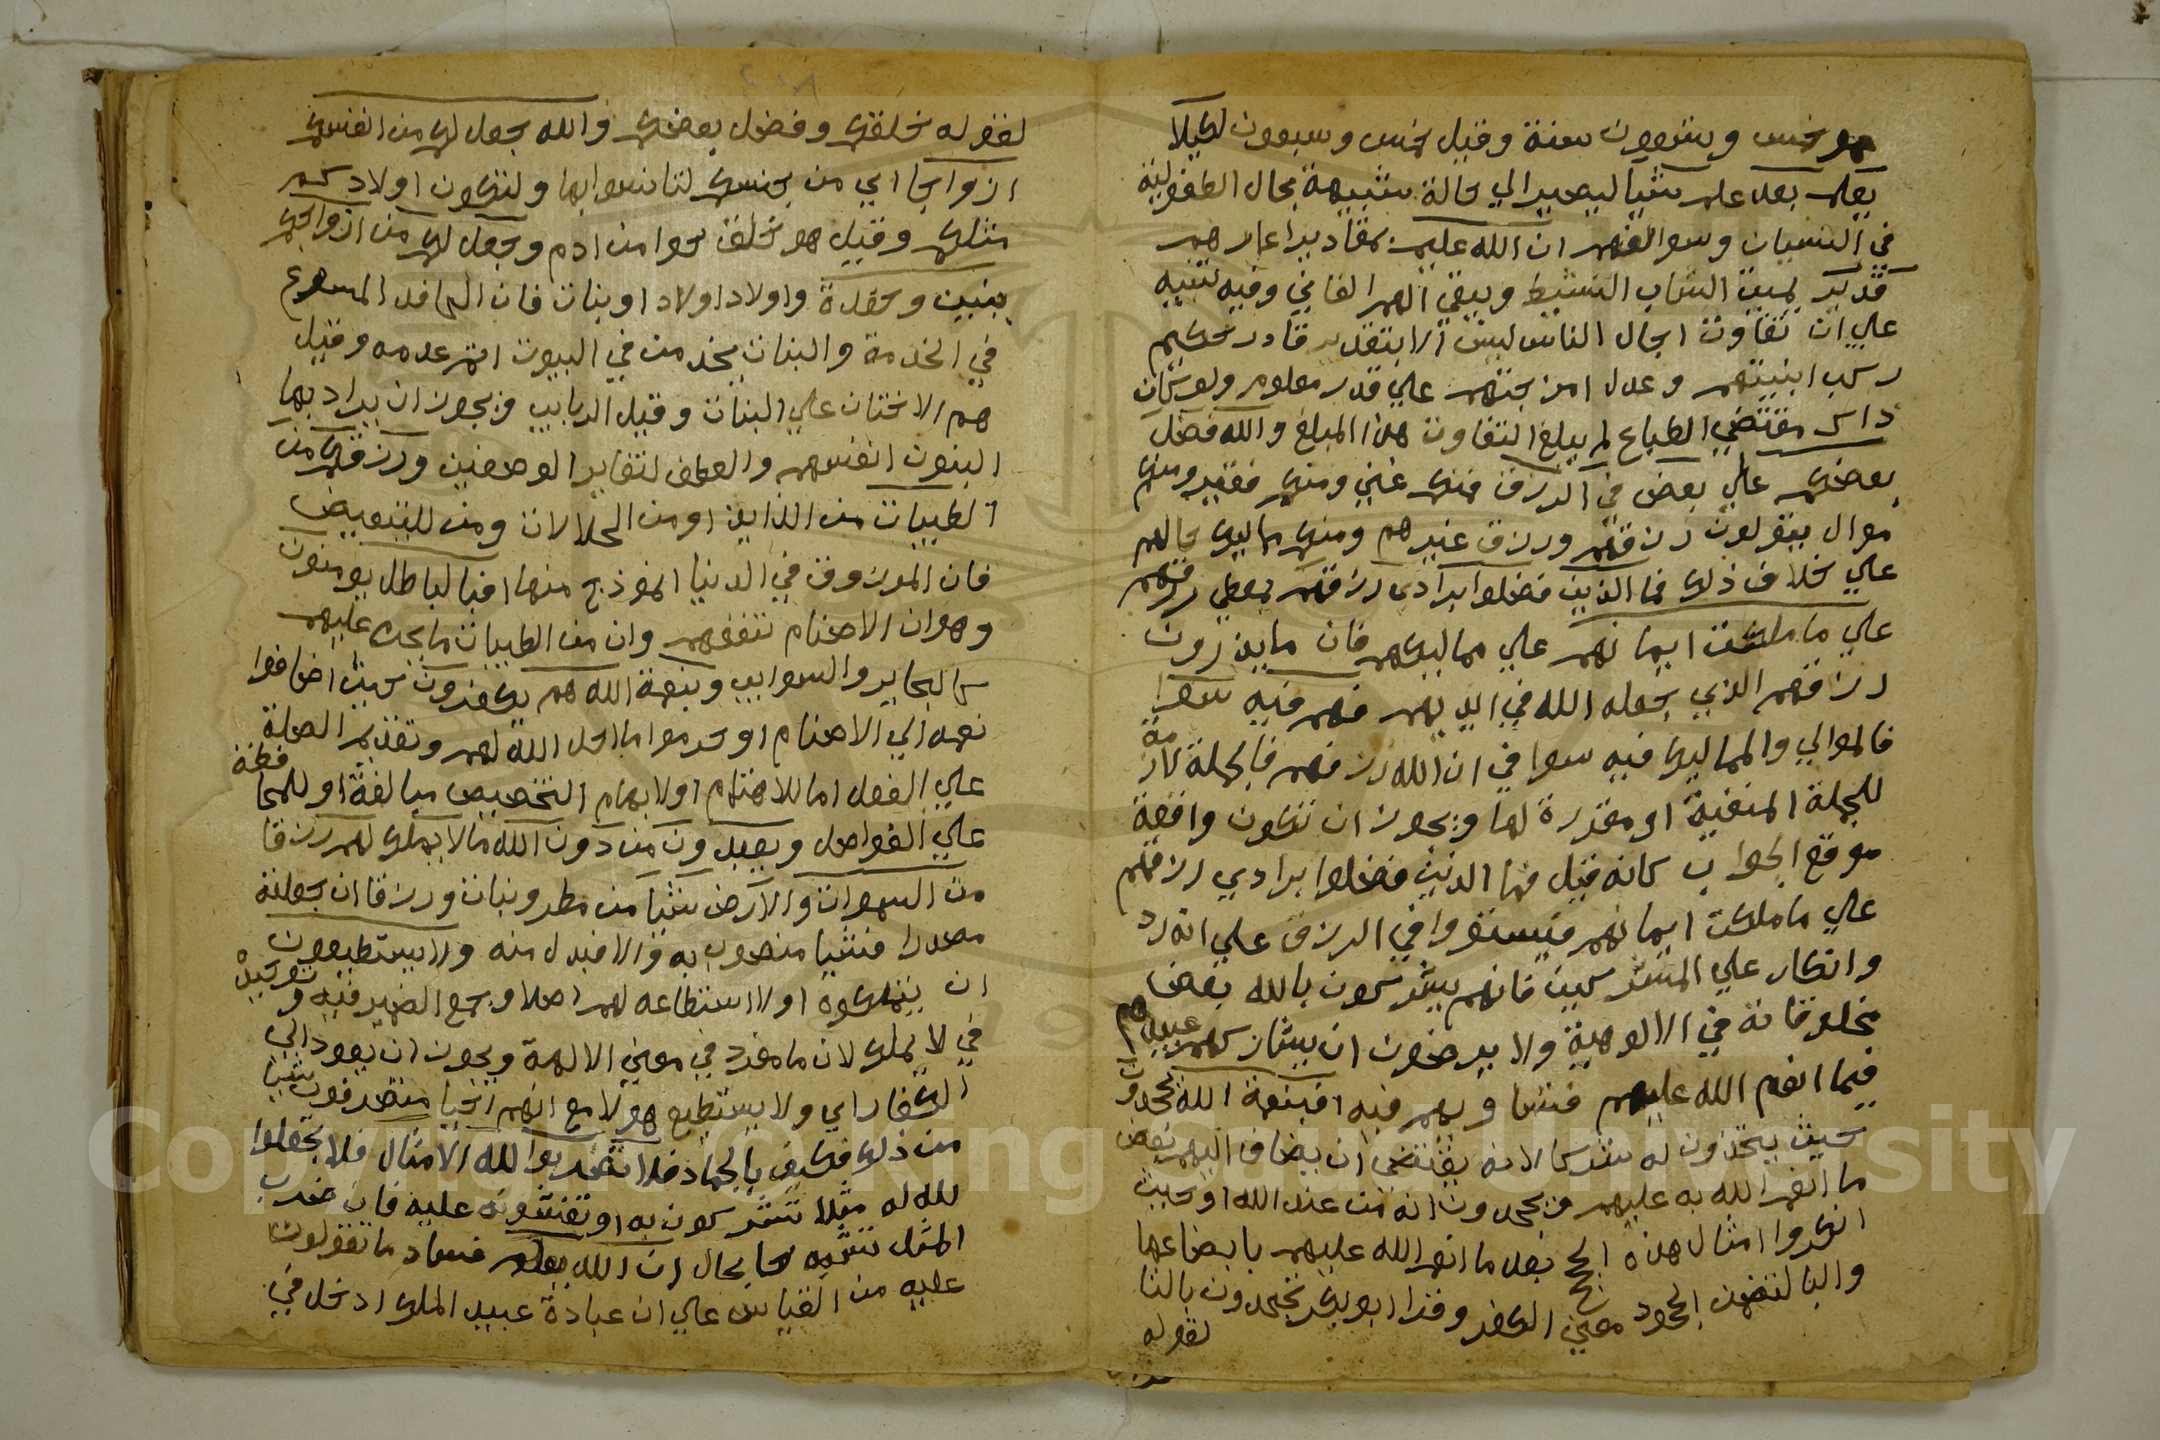 هو خمس وتسعون سنة وقيل خمس وسبعون لكيلا
يعلم بعد علم شيا ليصير الي حالة شبيهة بحال الطفولية
في النسيان وسوا الفهم ان الله عليم بمقادير اعمارهم
قدير يميت الشاب النشيط ويبقي الهرم الفاني وفيه تنبيه
علي ان تفاوت اجال الناس ليس الا بتقدير قادر حكيم
ركب ابنيتهم وعدل امزجتهم علي قدر معلوم ولو كان
ذاك مقتضي الطباع لم يبلغ التفاوت هذا المبلغ والله فضل
بعضكم علي بعض في الرزق فمنكم غني ومنكم فقير ومنكم
موال يتولون رزقهم ورزق غيرهم ومنكم مماليك حالهم
علي خلاف ذلك فما الذين فضلوا برادي رزقهم بمعطي رزقهم
علي ما ملكت ايمانهم علي مماليكهم فان ما يردون
رزقهم الذي جعله الله في ايديهم فهم فيه سوا
فالموالي والمماليك فيه سوا في ان الله رزقهم فالجملة لازمة
للجملة المنفية او مقررة لها ويجوز ان تكون واقعة
موقع الجواب كانه قيل فما الذين فضلوا برادي رزقهم
علي ما ملكت ايمانهم فيستووا في الرزق علي انه رد
وانكار علي المشركين فانهم يشركون بالله بعض
مخلوقاته في الالوهية ولا يرضون ان يشاركهم عبيدهم
فيما انعم الله عليهم فتساويهم فيه افبنعمة الله يجحدون
حيث يتخذون له شركا لانه يقتضي ان يضاف اليهم بعض
ما انعم الله به عليهم ويجحدون انه من عند الله او حيث
انكروا امثال هذه الحجج بعد ما انعم الله عليهم بايضاحها
والبا لتضمن الجحود معني الكفر وقرا ابو بكر تجحدون بالتا
لقوله
لقوله خلقكم وفضل بعضكم والله جعل لكم من انفسكم
ازواجا اي من جنسكم لتانسوا بها ولتكون اولادكم
مثلكم وقيل هو خلق حوا من ادم وجعل لكم من ازواجكم
بنين وحفدة واولاد اولاد او بنات فان الحافد المسرع
في الخدمة والبنات يخدمن في البيوت اتم خدمه وقيل
هم الاختان علي البنات وقيل الربايب ويجوز ان يراد بها
البنون انفسهم والعطف لتغاير الوصفين ورزقكم من
الطيبات من اللذايذ او من الحلالات ومن للتبعيض
فان المرزوق في الدنيا انموذج منها افبالباطل يومنون
وهو ان الاصنام تنفعهم وان من الطيبات ما يحرم عليهم
كالبحاير والسوايب وبنعمة الله هم يكفرون حيث اضافوا
نعمه الي الاصنام او حرموا ما احل الله لهم وتقديم الصلة
علي الفعل اما للاهتمام او لايهام التخصيص مبالغة او للمحافظة
علي الفواصل ويعبدون من دون الله ما لا يملك لهم رزقا
من السموات والارض شيا من مطر ونبات ورزقا ان جعلته
مصدرا فشيا منصوب به والا فبدل منه ولا يستطيعون
ان يتملكوه او لا استطاعه لهم اصلا وجمع الضمير فيه وتوحيده
في لا يملك لان ما مفرد في معني الالهة ويجوز ان يعود الي
الكفار اي ولا يستطيع هولا مع انهم احيا متصرفون شيا
من ذلك فكيف بالجماد فلا تضربوا لله الامثال فلا تجعلوا
لله له مثلا تشركون به او تقيسونه عليه فان ضرب
المثل تشبيه حال بحال ان الله يعلم فساد ما تقولون
عليه من القياس علي ان عبادة عبيد الملك ادخل في